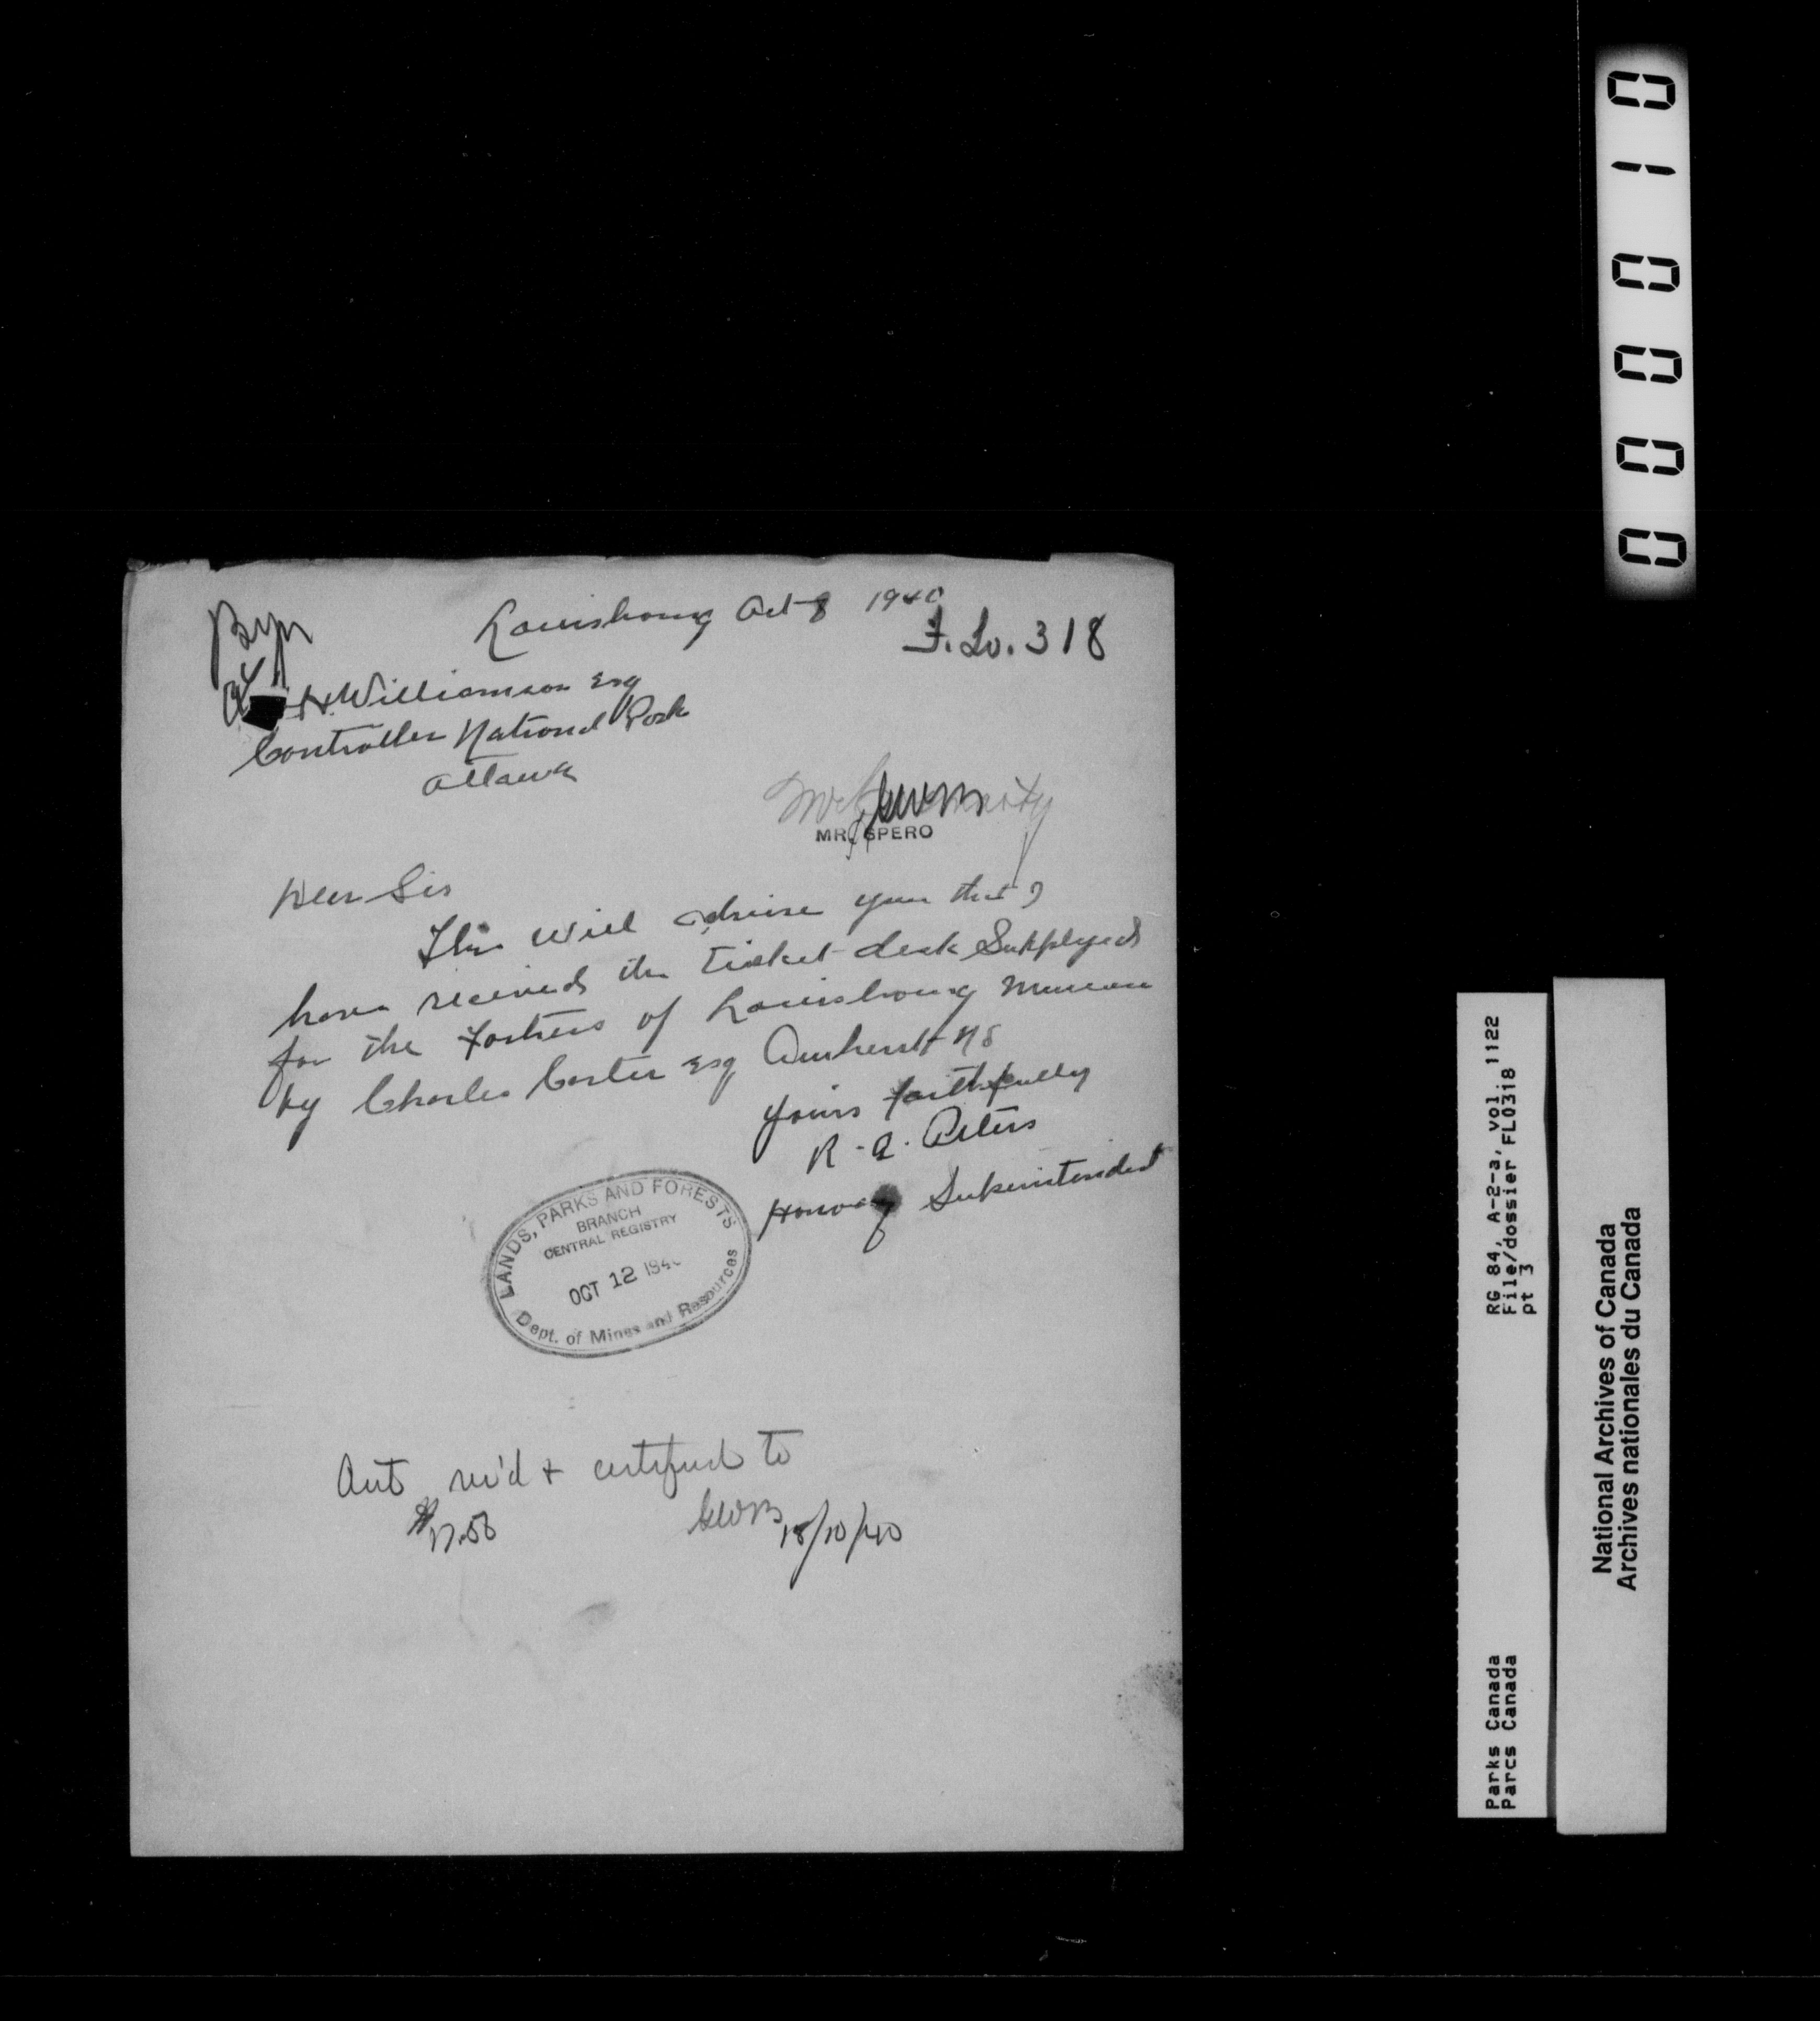 Louisbourg Oct 8 1940
F. Lo. 318
H. Williamson Esq
Controller National Park
Ottawa
MR. SPERO
Dear Sir
This will advise you that I
have received the ticket desk Supplyed
for the Fortress of Louisbourg Museum
by Charles Carter Esq Amherst NS
yours faithfully
R. A.
Honorary Superintendent
LANDS, PARKS AND FORESTS
BRANCH
CENTRAL REGISTRY
OCT 12 1940
Dept. of Mines and Resources
rec'd + certified to
$17.50
GWB 18/10/40
000010
RG 84, A-2-a, vol. 1122
File/dossier FL0318
pt 3
Parks Canada
Parcs Canada
National Archives of Canada
Archives nationales du Canada